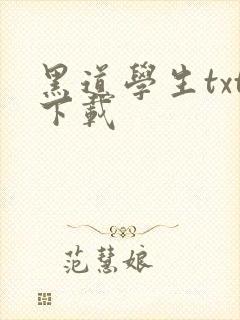 黑道學生txt
下載
范慧娘